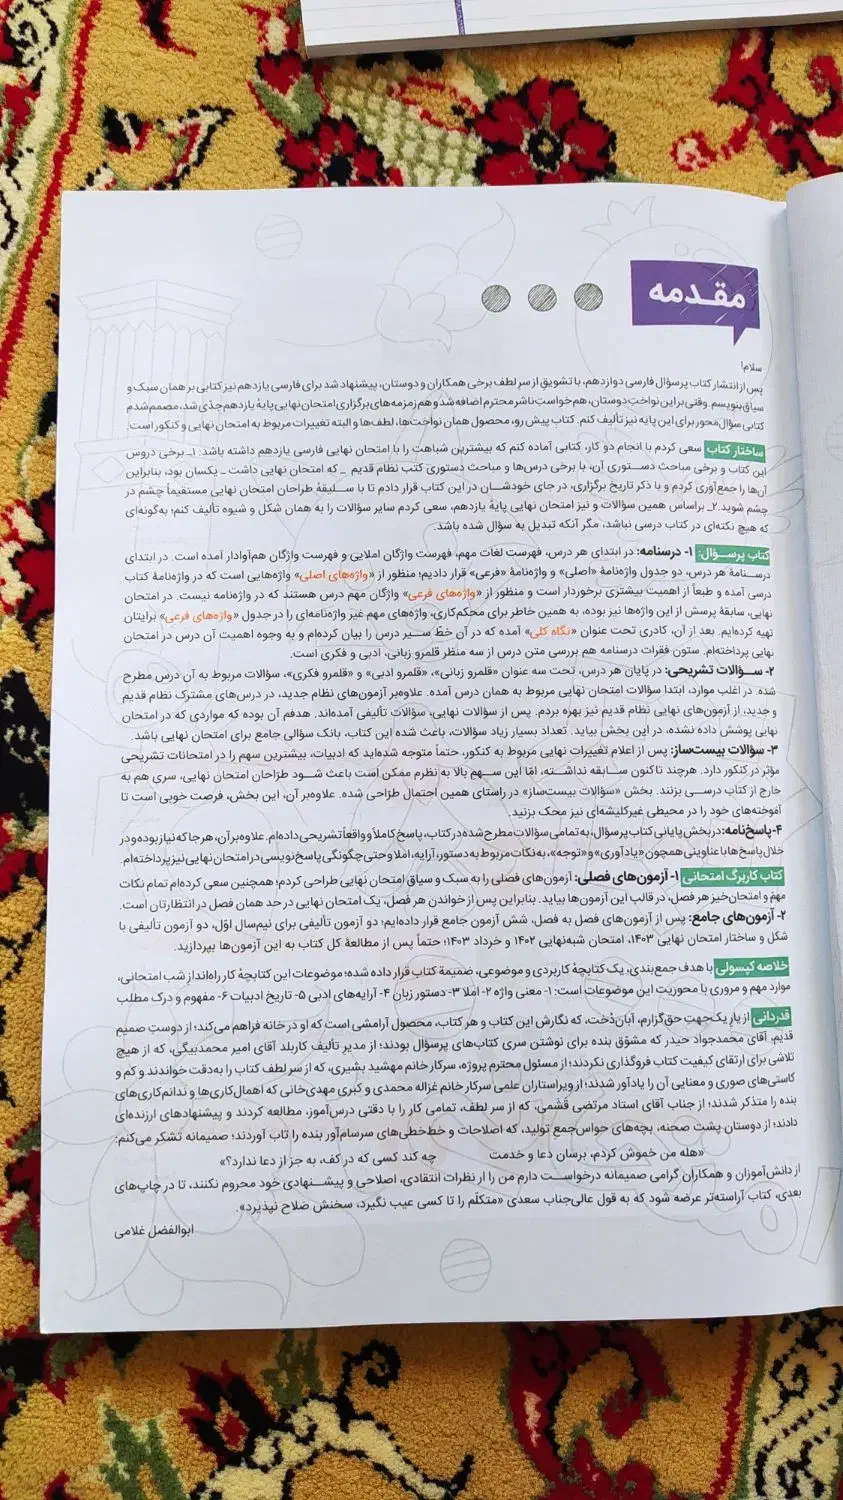 مقدمه
سلام!
پس از انتشار کتاب پرسؤال فارسی دوازدهم، با تشویق از سر لطف برخی همکاران و دوستان، پیشنهاد شد برای فارسی یازدهم نیز کتابی بر همان سبک و
سیاق بنویسم. وقتی بر این نواختِ دوستان، هم خواستِ ناشر محترم اضافه شد و هم زمزمه‌های برگزاری امتحان نهایی پایهٔ یازدهم جدّی شد، مصمم شدم
کتابی سؤال‌محور برای این پایه نیز تألیف کنم. کتاب پیش رو، محصول همان نواخت‌ها، لطف‌ها و البته تغییرات مربوط به امتحان نهایی و کنکور است.
ساختار کتاب سعی کردم با انجام دو کار، کتابی آماده کنم که بیشترین شباهت را با امتحان نهایی فارسی یازدهم داشته باشد: ۱ـ برخی دروس
این کتاب و برخی مباحث دستوری آن، با برخی درس‌ها و مباحث دستوری کتب نظام قدیم ـ که امتحان نهایی داشت ـ یکسان بود، بنابراین
آن‌ها را جمع‌آوری کردم و با ذکر تاریخ برگزاری، در جای خودشان در این کتاب قرار دادم تا با سلیقهٔ طراحان امتحان نهایی مستقیماً چشم در
چشم شوید. ۲ـ براساس همین سؤالات و نیز امتحان نهایی پایهٔ یازدهم، سعی کردم سایر سؤالات را به همان شکل و شیوه تألیف کنم؛ به‌گونه‌ای
که هیچ نکته‌ای در کتاب درسی نباشد، مگر آنکه تبدیل به سؤال شده باشد.
کتاب پرسؤال: ۱- درسنامه: در ابتدای هر درس، فهرست لغات مهم، فهرست واژگان املایی و فهرست واژگان هم‌آوادار آمده است. در ابتدای
درسنامهٔ هر درس، دو جدول واژه‌نامهٔ «اصلی» و واژه‌نامهٔ «فرعی» قرار دادیم؛ منظور از «واژه‌های اصلی» واژه‌هایی است که در واژه‌نامهٔ کتاب
درسی آمده و طبعاً از اهمیت بیشتری برخوردار است و منظور از «واژه‌های فرعی» واژگان مهم درس هستند که در واژه‌نامه نیست. در امتحان
نهایی، سابقهٔ پرسش از این واژه‌ها نیز بوده، به همین خاطر برای محکم‌کاری، واژه‌های مهم غیر واژه‌نامه‌ای را در جدول «واژه‌های فرعی» برایتان
تهیه کرده‌ایم. بعد از آن، کادری تحت عنوان «نگاه کلی» آمده که در آن خطّ سیر درس را بیان کرده‌ام و به وجوه اهمیت آن درس در امتحان
نهایی پرداخته‌ام. ستون فقرات درسنامه هم بررسی متن درس از سه منظر قلمرو زبانی، ادبی و فکری است.
۲- سؤالات تشریحی: در پایان هر درس، تحت سه عنوان «قلمرو زبانی»، «قلمرو ادبی» و «قلمرو فکری»، سؤالات مربوط به آن درس مطرح
شده. در اغلب موارد، ابتدا سؤالات امتحان نهایی مربوط به همان درس آمده. علاوه‌بر آزمون‌های نظام جدید، در درس‌های مشترک نظام قدیم
و جدید، از آزمون‌های نهایی نظام قدیم نیز بهره بردم. پس از سؤالات نهایی، سؤالات تألیفی آمده‌اند. هدفم آن بوده که مواردی که در امتحان
نهایی پوشش داده نشده، در این بخش بیاید. تعداد بسیار زیاد سؤالات، باعث شده این کتاب، بانک سؤالی جامع برای امتحان نهایی باشد.
۳- سؤالات بیست‌ساز: پس از اعلام تغییرات نهایی مربوط به کنکور، حتماً متوجه شده‌اید که ادبیات، بیشترین سهم را در امتحانات تشریحی
مؤثر در کنکور دارد. هرچند تاکنون سابقه نداشته، امّا این سهم بالا به نظرم ممکن است باعث شود طراحان امتحان نهایی، سری هم به
خارج از کتاب درسی بزنند. بخش «سؤالات بیست‌ساز» در راستای همین احتمال طرّاحی شده. علاوه‌بر آن، این بخش، فرصت خوبی است تا
آموخته‌های خود را در محیطی غیرکلیشه‌ای نیز محک بزنید.
۴- پاسخ‌نامه: در بخش پایانی کتاب پرسؤال، به تمامی سؤالات مطرح شده در کتاب، پاسخ کاملاً و واقعاً تشریحی داده‌ام. علاوه‌بر آن، هر جا که نیاز بوده و در
خلال پاسخ‌ها با عناوینی همچون «یادآوری» و «توجه»، به نکات مربوط به دستور، آرایه، املا و حتی چگونگی پاسخ‌نویسی در امتحان نهایی نیز پرداخته‌ام.
کتاب کاربرگ امتحانی ۱- آزمون‌های فصلی: آزمون‌های فصلی را به سبک و سیاق امتحان نهایی طراحی کردم؛ همچنین سعی کرده‌ام تمام نکات
مهمّ و امتحان‌خیز هر فصل، در قالب این آزمون‌ها بیاید. بنابراین پس از خواندن هر فصل، یک امتحان نهایی در حد همان فصل در انتظارتان است.
۲- آزمون‌های جامع: پس از آزمون‌های فصل به فصل، شش آزمون جامع قرار داده‌ایم؛ دو آزمون تألیفی برای نیم‌سال اوّل، دو آزمون تألیفی با
شکل و ساختار امتحان نهایی ۱۴۰۳، امتحان شبه‌نهایی ۱۴۰۲ و خرداد ۱۴۰۳؛ حتماً پس از مطالعهٔ کل کتاب به این آزمون‌ها بپردازید.
خلاصه کپسولی با هدف جمع‌بندی، یک کتابچهٔ کاربردی و موضوعی، ضمیمهٔ کتاب قرار داده شده؛ موضوعات این کتابچهٔ کار راه‌انداز شب امتحانی،
موارد مهم و مروری با محوریت این موضوعات است: ۱- معنی واژه ۲- املا ۳- دستور زبان ۴- آرایه‌های ادبی ۵- تاریخ ادبیات ۶- مفهوم و درک مطلب
قدردانی از یارِ یک‌جهتِ حق‌گزارم، آبان‌دُخت، که نگارش این کتاب و هر کتاب، محصول آرامشی است که او در خانه فراهم می‌کند؛ از دوستِ صمیم
قدیم، آقای محمدجواد حیدر که مشوّق بنده برای نوشتن سری کتاب‌های پرسؤال بودند؛ از مدیرِ تألیف کاربلد آقای امیر محمدبیگی، که از هیچ
تلاشی برای ارتقای کیفیت کتاب فروگذاری نکردند؛ از مسئول محترم پروژه، سرکار خانم مهشید بشیری، که از سر لطف کتاب را به‌دقت خواندند و کم و
کاستی‌های صوری و معنایی آن را یادآور شدند؛ از ویراستاران علمی سرکار خانم غزاله محمدی و کبری مهدی‌خانی که اهمال‌کاری‌ها و ندانم‌کاری‌های
بنده را متذکر شدند؛ از جناب آقای استاد مرتضی قَشمی، که از سر لطف، تمامی کار را با دقتی درس‌آموز، مطالعه کردند و پیشنهادهای ارزنده‌ای
دادند؛ از دوستان پشت صحنه، بچه‌های حواس‌جمع تولید، که اصلاحات و خط‌خطی‌های سرسام‌آور بنده را تاب آوردند؛ صمیمانه تشکر می‌کنم:
«هله من خموش کردم، برسان دعا و خدمت چه کند کسی که در کف، به جز از دعا ندارد؟»
از دانش‌آموزان و همکاران گرامی صمیمانه درخواست دارم من را از نظرات انتقادی، اصلاحی و پیشنهادی خود محروم نکنند، تا در چاپ‌های
بعدی، کتاب آراسته‌تر عرضه شود که به قول عالی‌جناب سعدی «متکلّم را تا کسی عیب نگیرد، سخنش صَلاح نپذیرد».
ابوالفضل غلامی